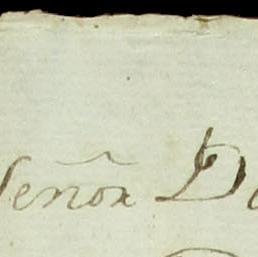 Señor D